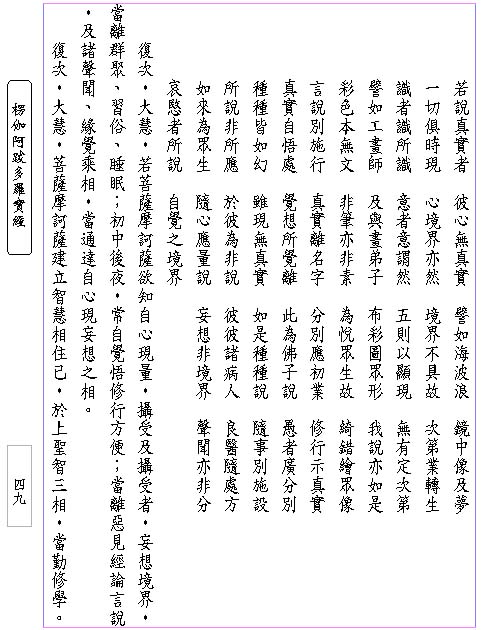 若說真實者　彼心無真實　譬如海波浪　鏡中像及夢
一切俱時現　心境界亦然　境界不具故　次第業轉生
識者識所識　意者意謂然　五則以顯現　無有定次第
譬如工畫師　及與畫弟子　布彩圖眾形　我說亦如是
彩色本無文　非筆亦非素　為悅眾生故　綺錯繪眾像
言說別施行　真實離名字　分別應初業　修行示真實
真實自悟處　覺想所覺離　此為佛子說　愚者廣分別
種種皆如幻　雖現無真實　如是種種說　隨事別施設
所說非所應　於彼為非說　彼彼諸病人　良醫隨處方
如來為眾生　隨心應量說　妄想非境界　聲聞亦非分
哀愍者所說　自覺之境界
復次．大慧．若菩薩摩訶薩欲知自心現量．攝受及攝受者．妄想境界．
當離群聚、習俗、睡眠；初中後夜．常自覺悟修行方便；當離惡見經論言說
．及諸聲聞、緣覺乘相．當通達自心現妄想之相。
復次．大慧．菩薩摩訶薩建立智慧相住已．於上聖智三相．當勤修學。
楞伽阿跋多羅寶經
四九